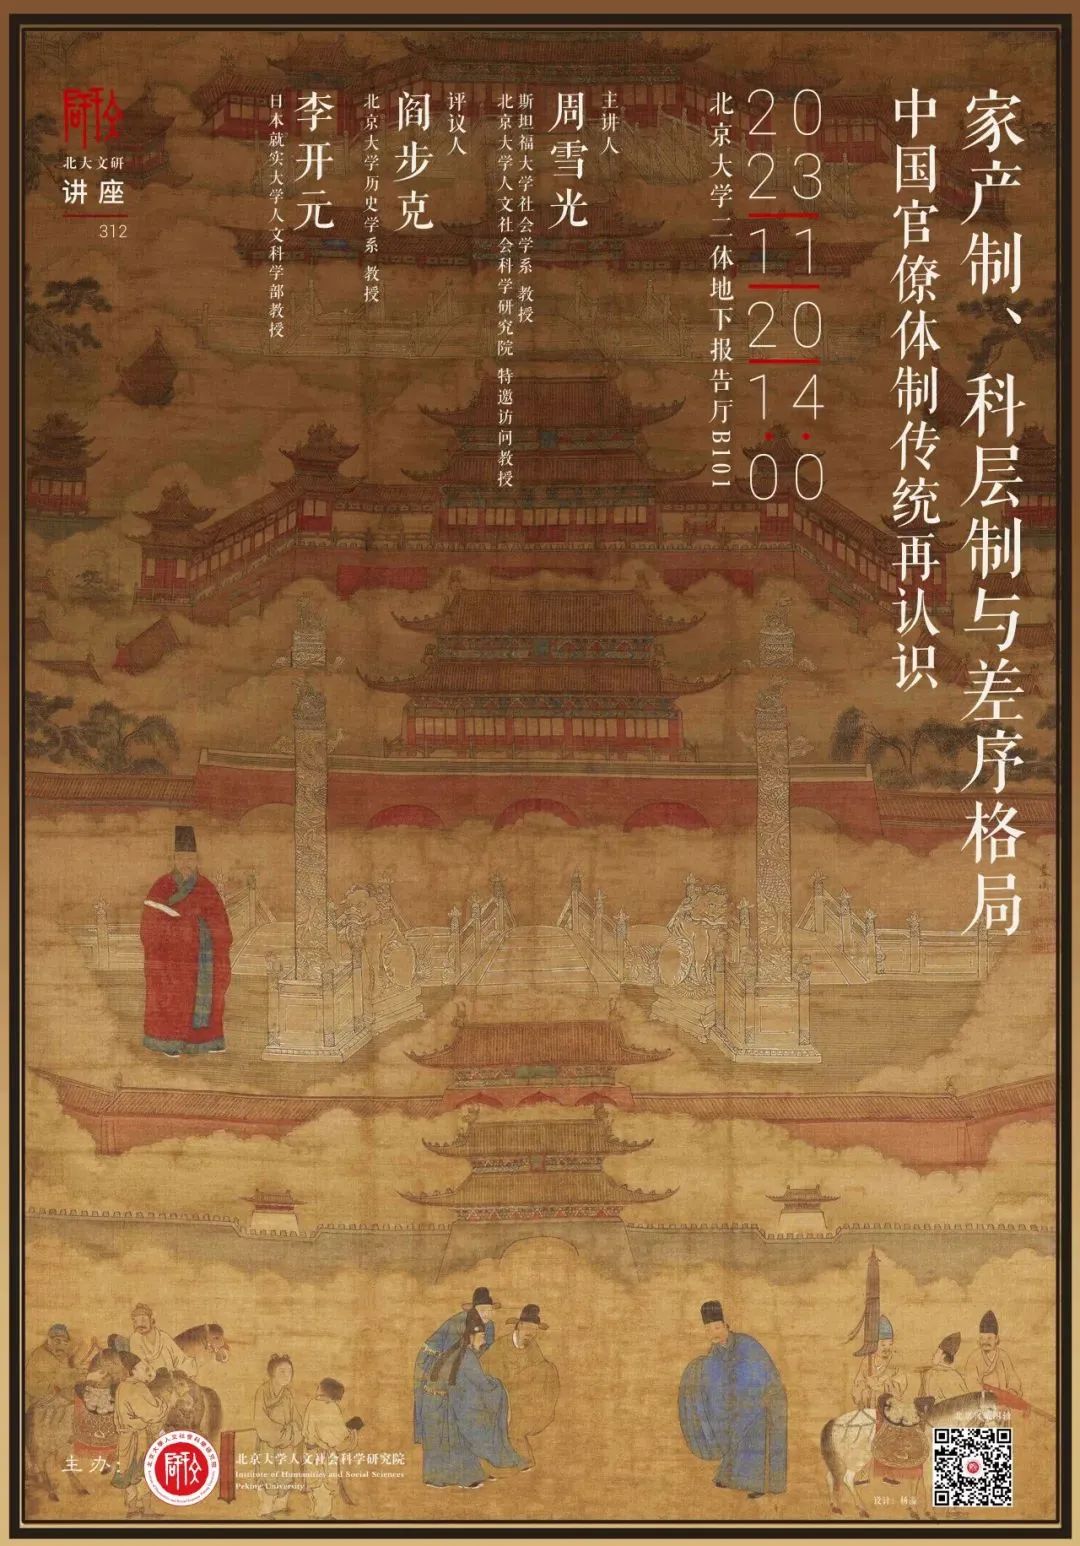 家产制、科层制与差序格局
中国官僚体制传统再认识
2023
11
20
14:00
北京大学二体地下报告厅B101
主讲人
周雪光
斯坦福大学社会学系 教授
北京大学人文社会科学研究院 特邀访问教授
评议人
阎步克
北京大学历史学系 教授
李开元
日本就实大学人文科学部教授
北大文研
讲座
312
主办：
北京大学人文社会科学研究院
Institute of Humanities and Social Sciences
Peking University